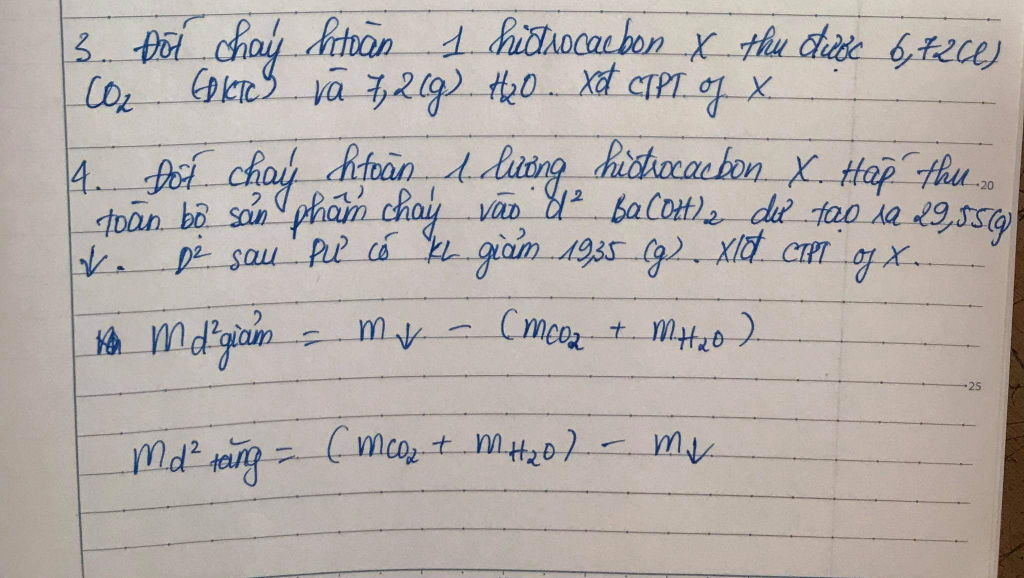 3. Đốt cháy htoàn 1 hiđrocacbon X thu được 6,72(l)
CO2 (ĐKTC) và 7,2(g) H2O. Xđ CTPT of X.
4. Đốt cháy htoàn 1 lượng hiđrocacbon X. Hấp thu
20
toàn bộ sản phẩm cháy vào d² Ba(OH)2 dư tạo ra 29,55(g)
↓. D² sau PƯ có KL giảm 19,35 (g). Xđ CTPT of X.
md² giảm = m↓ - (mCO2 + mH2O)
25
md² tăng = (mCO2 + mH2O) - m↓